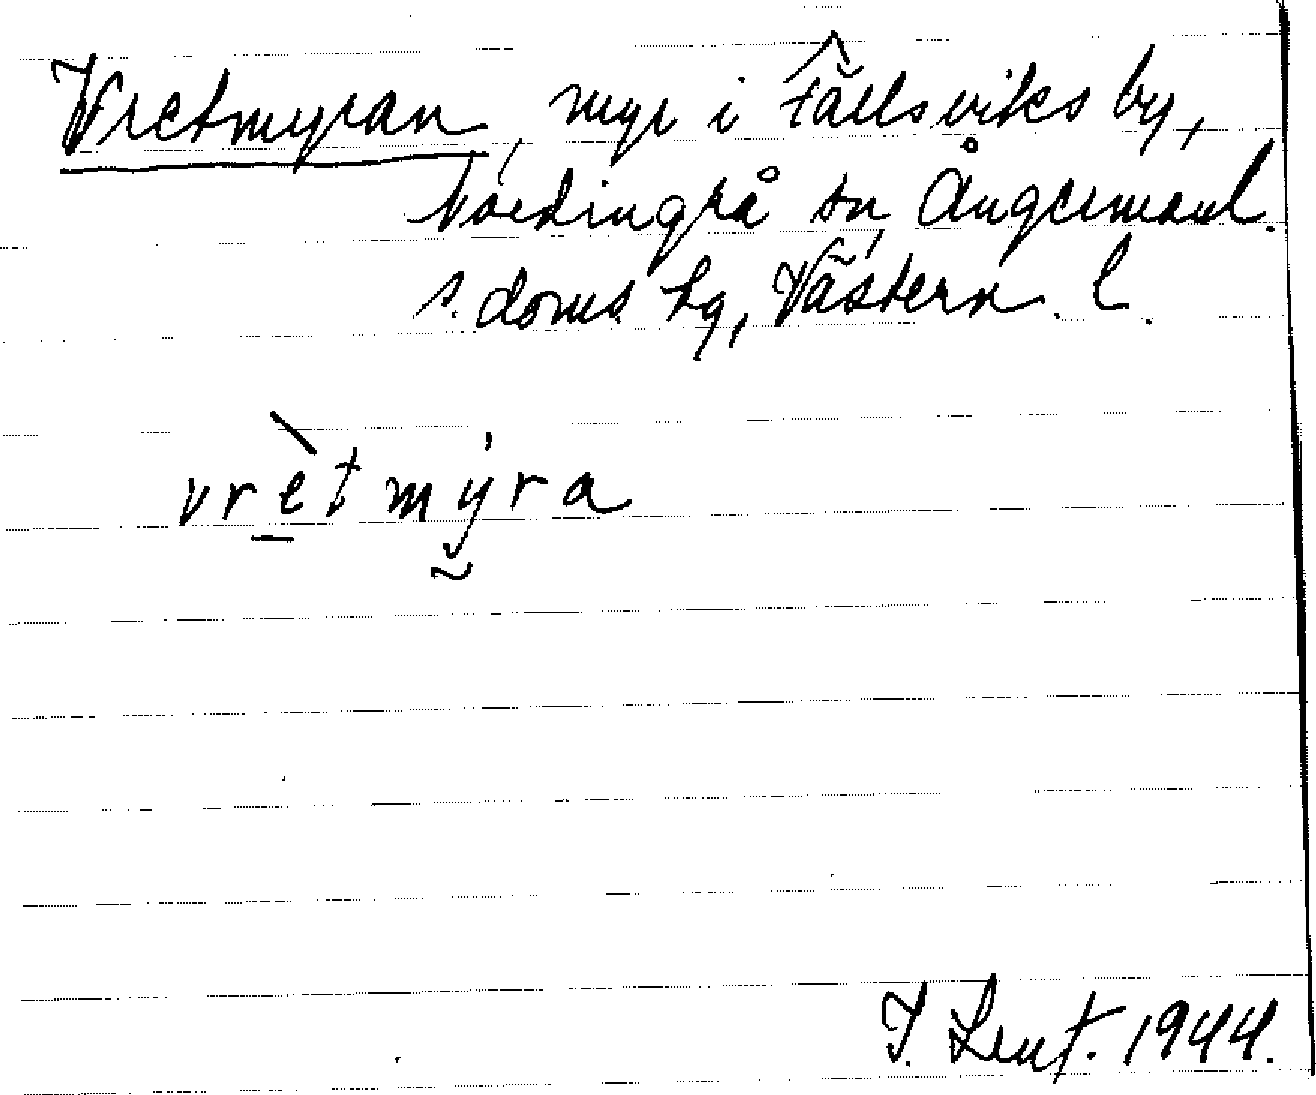 Vretmyran, myr i Fällsviks by,
Nordingrå sn, Ångermanl.
s. doms. hg, Västern. l.
vrètmýra
J. Lent. 1944.